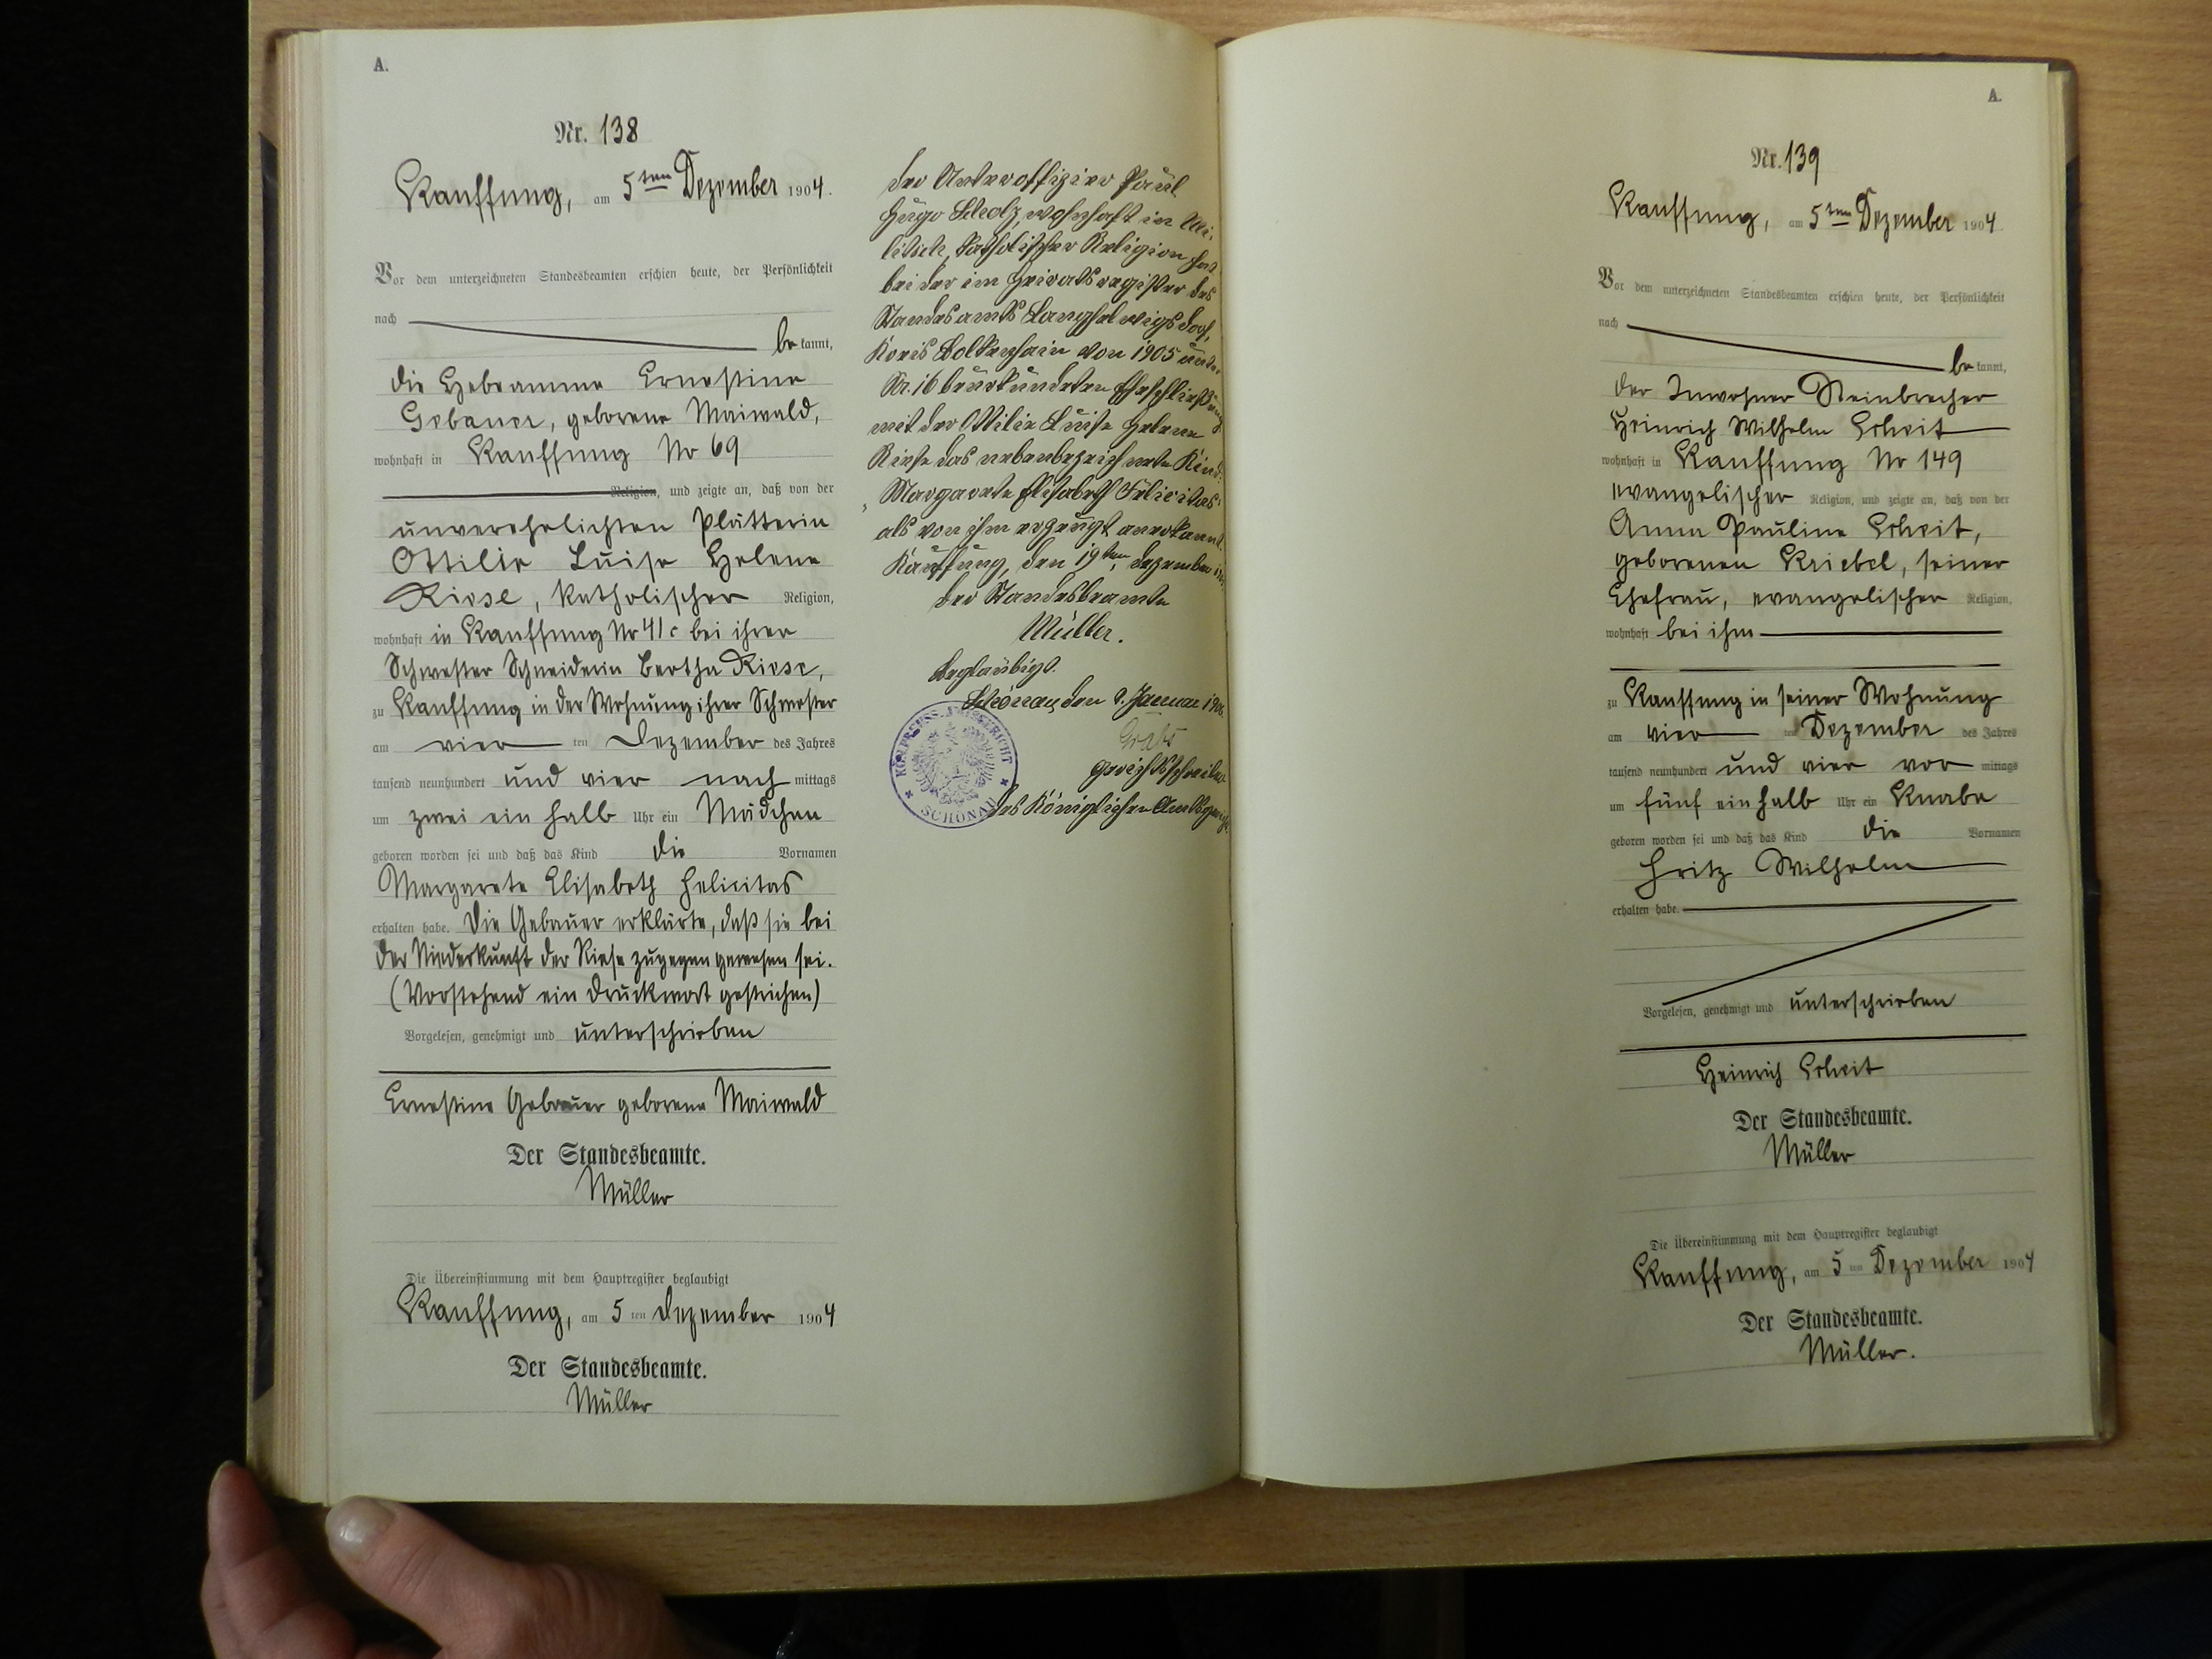 A.
Nr. 138
Kauffung, am 5ten Dezember 1904.
Vor dem unterzeichneten Standesbeamten erschien heute, der Persönlichkeit
nach be kannt,
die Hebeamme Ernestine
Gebauer, geborene Maiwald,
wohnhaft in Kauffung Nr 69
Religion, und zeigte an, daß von der
unverehelichten Plätterin
Ottilie Luise Helene
Riese, katholischer Religion,
wohnhaft in Kauffung Nr 41c bei ihrer
Schwester Schneiderin Bertha Riese,
zu Kauffung in der Wohnung ihrer Schwester
am vier ten Dezember des Jahres
tausend neunhundert und vier nach mittags
um zwei ein halb Uhr ein Mädchen
geboren worden sei und daß das Kind die Vornamen
Margarete Elisabeth Felicitas
erhalten habe. Die Gebauer erklärte, daß sie bei
der Niederkunft der Riese zugegen gewesen sei.
(Vorstehend ein Druckwort gestrichen)
Vorgelesen, genehmigt und unterschrieben
Ernestine Gebauer geborene Maiwald
Der Standesbeamte.
Müller
Die Übereinstimmung mit dem Hauptregister beglaubigt
Kauffung, am 5 ten Dezember 1904
Der Standesbeamte.
Müller
Der Unteroffizier Paul
Hugo Scholz, wohnhaft in Mi-
litsch, katholischer Religion hat
bei der im Heiratsregister des
Standesamts Langhelwigsdorf,
Kreis Bolkenhain von 1905 unter
Nr. 16 beurkundeten Eheschließung
mit der Ottilie Luise Helene
Riese das nebenbezeichnete Kind:
"Margarete Elisabeth Felicitas"
als von ihm erzeugt anerkannt.
Kauffung, den 19ten Dezember
Der Standesbeamte
Müller.
Beglaubigt.
Schönau, den 9. Januar 1906.
Gerichtsschreiber
des Königlichen Amtsgerichts
KÖNIGL. PREUSS. AMTSGERICHT
SCHÖNAU
A.
Nr. 139
Kauffung, am 5ten Dezember 1904
Vor dem unterzeichneten Standesbeamten erschien heute, der Persönlichkeit
nach be kannt,
der Inwohner Steinbrecher
Heinrich Wilhelm Scheit
wohnhaft in Kauffung Nr 149
evangelischer Religion, und zeigte an, daß von der
Anna Pauline Scheit,
geborenen Kriebel, seiner
Ehefrau, evangelischer Religion,
wohnhaft bei ihm
zu Kauffung in seiner Wohnung
am vier ten Dezember des Jahres
tausend neunhundert und vier vor mittags
um fünf ein halb Uhr ein Knabe
geboren worden sei und daß das Kind die Vornamen
Fritz Wilhelm
erhalten habe.
Vorgelesen, genehmigt und unterschrieben
Heinrich Scheit
Der Standesbeamte.
Müller
Die Übereinstimmung mit dem Hauptregister beglaubigt
Kauffung, am 5 ten Dezember 1904
Der Standesbeamte.
Müller.